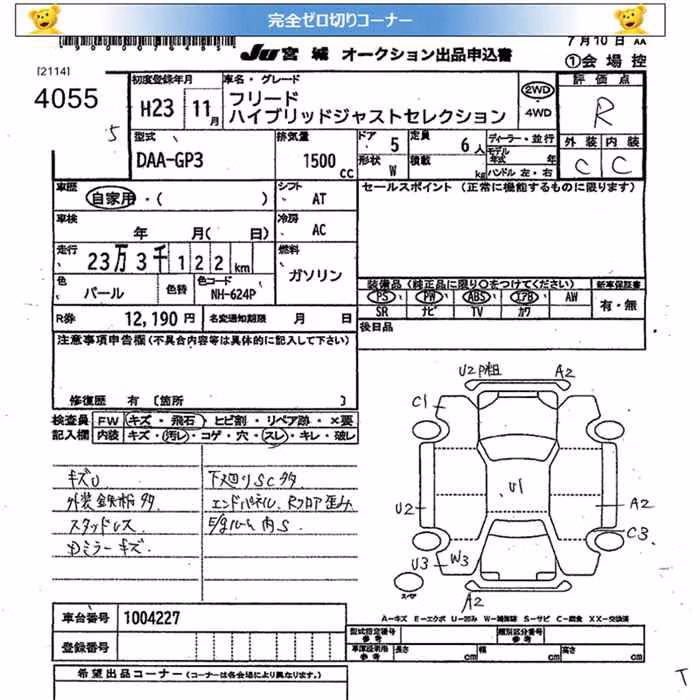 完全ゼロ切りコーナー
JU 宮城 オークション出品申込書
7月10日 AA
①会場控
[2114]
4055
5
初度登録年月 H23 11月
車名・グレード
フリード
ハイブリッドジャストセレクション
2WD
・
4WD
評価点
R
外装 内装
C C
型式 DAA-GP3
排気量 1500 cc
ドア 5
形状 W
定員 6人
積載 kg
ディーラー・並行
モデル年式 年
ハンドル 左・右
車歴 自家用・( )
シフト AT
セールスポイント(正常に機能するものに限ります)
車検 年 月( 日)
冷房 AC
走行 23万3千122km
燃料 ガソリン
色 パール 色替 色コード NH-624P
装備品(純正品に限り○をつけてください)
新車保証書
PS・PW・ABS・エアB・AW
SR ナビ TV カワ
有・無
R券 12,190円 名変通知期限 月 日
後日品
注意事項申告欄(不具合内容等は具体的に記入して下さい)
修復歴 有 [箇所 ]
検査員記入欄
FW キズ・飛石・ヒビ割・リペア跡・×要
内装 キズ・汚レ・コゲ・穴・スレ・キレ・破レ
キズU
外装鉄粉多
スタッドレス
ミラーキズ
下廻りSC多
エンドパネル、Rフロア歪み
内S
U2 P粗 A2
C1
U1
U2 A2
C3
U3 W3
A2
スペア
A-キズ E-エクボ U-凹み W-補修跡 S-サビ C-腐食 XX-交換済
車台番号 1004227
登録番号
型式指定番号 参考 類別区分番号 参考
車庫証明用 参考 長さ cm 幅 cm 高さ cm
希望出品コーナー(コーナーは各会場により異なります。)
T